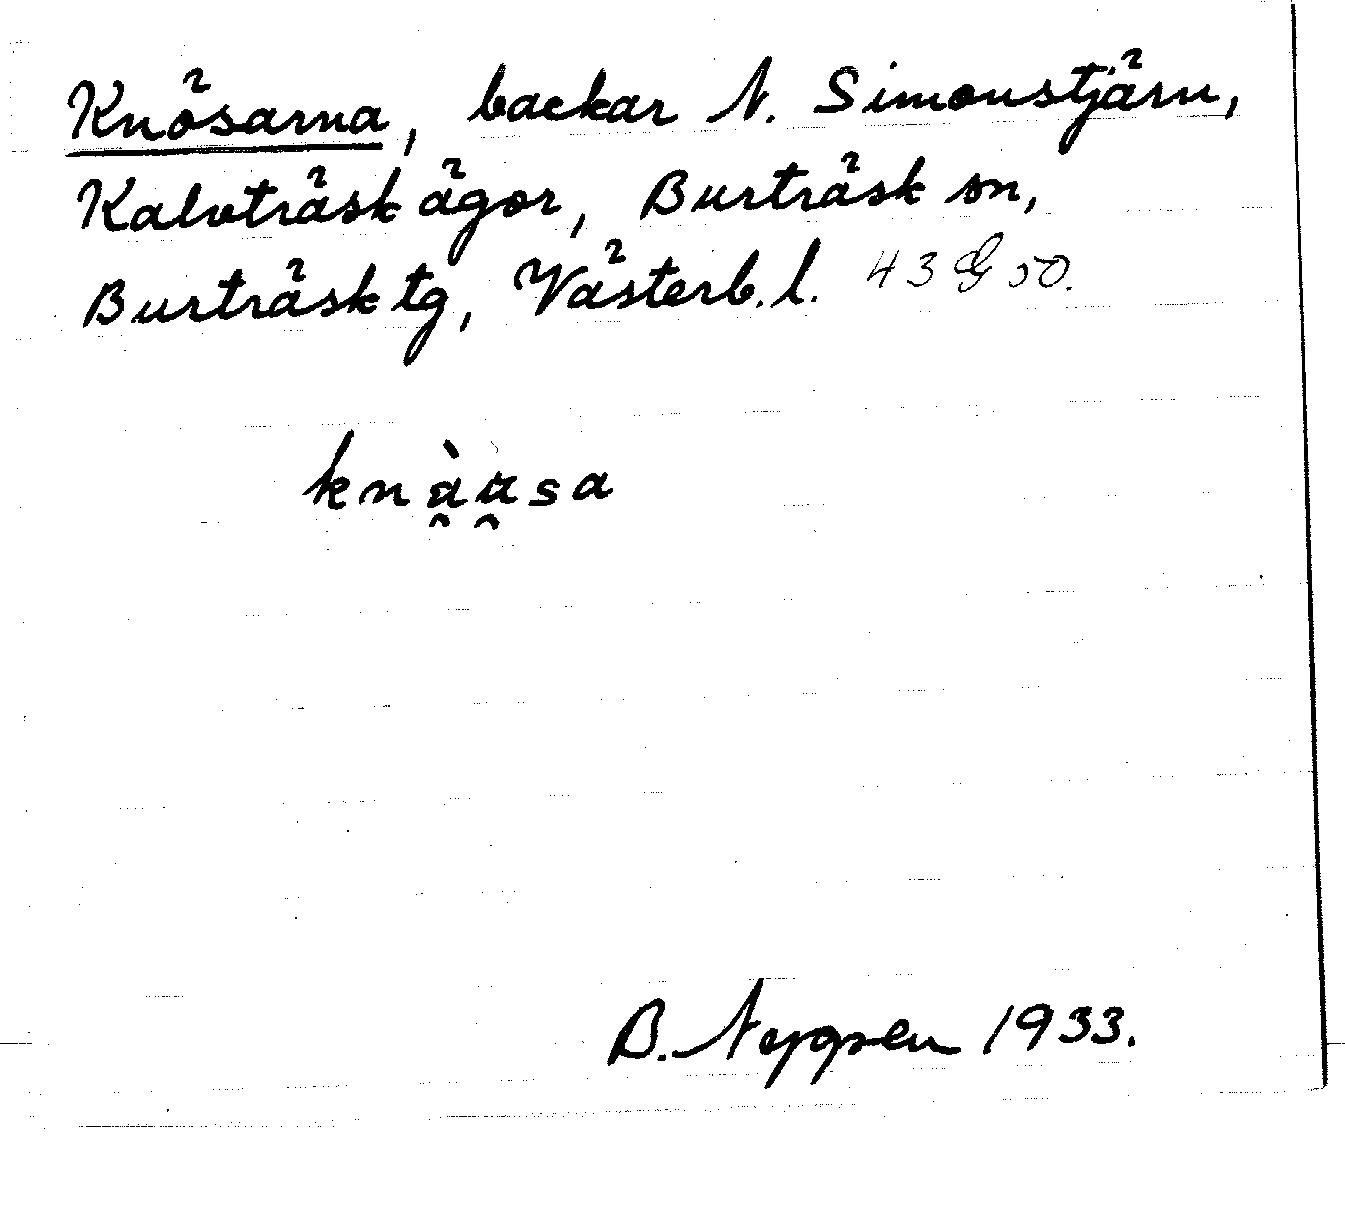 Knösarna, backar N. Simonstjärn,
Kalvträsk ägor, Burträsk sn,
Burträsk tg, Västerb. l. 43 G 50.
knà̯a̯sa
B. 1933.